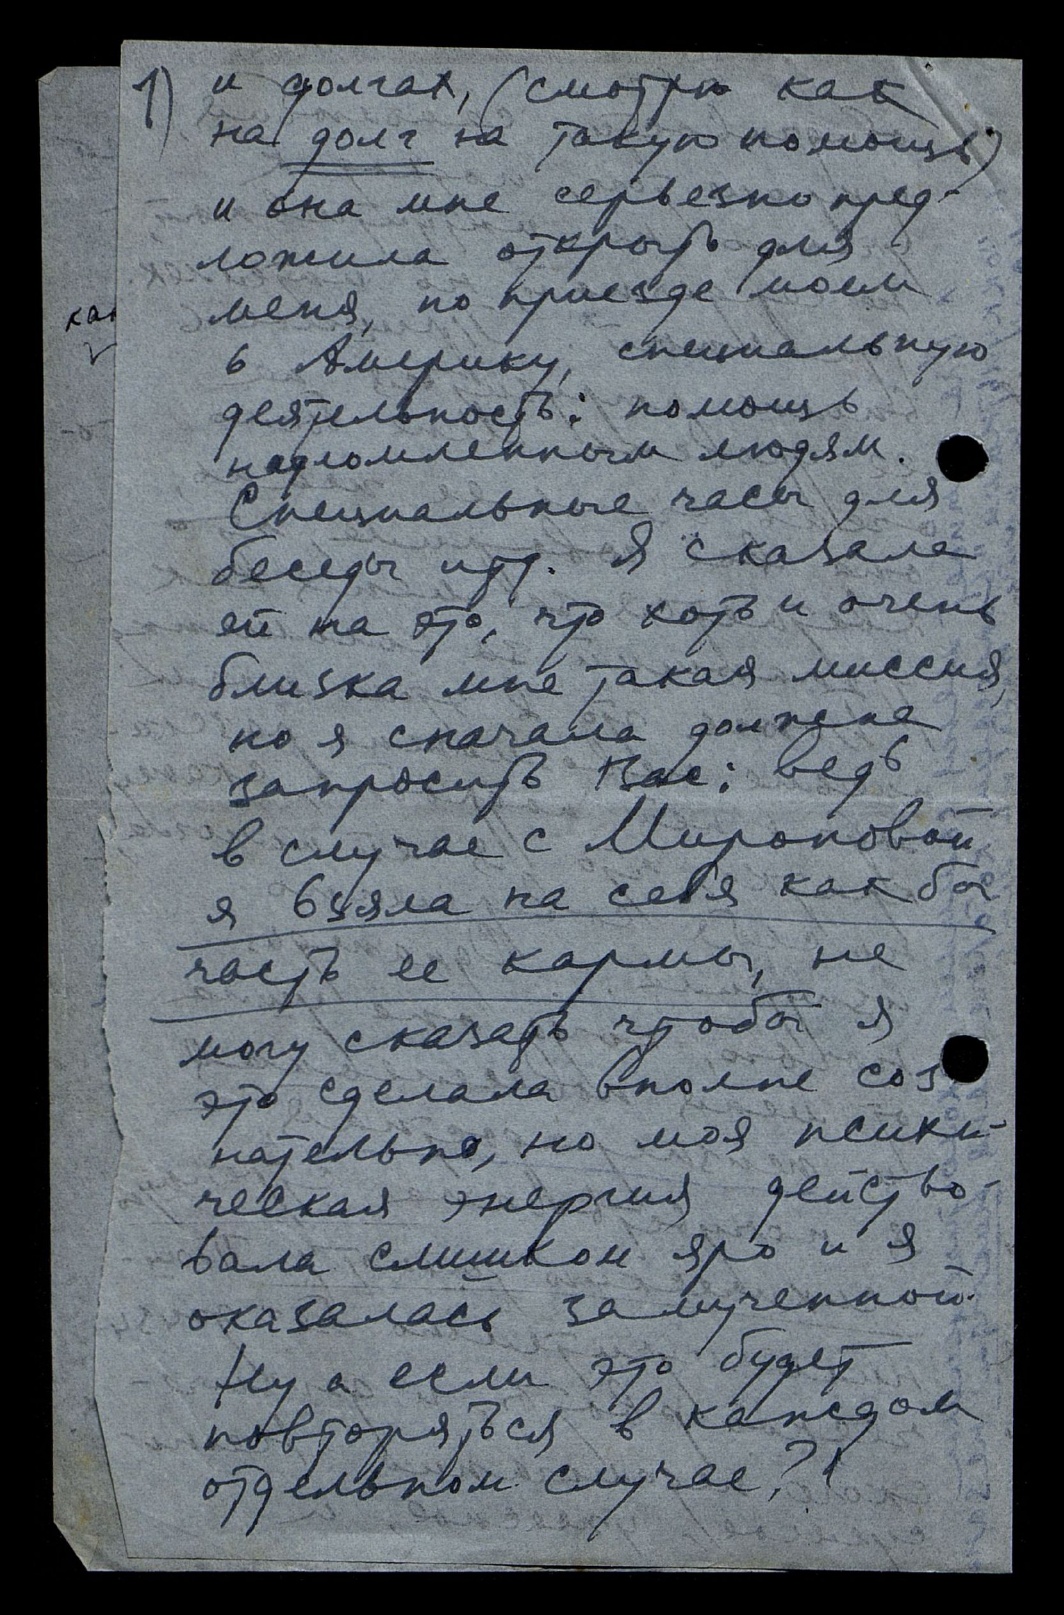 1) и долгах, (смотрю как
на долг на такую помощь)
и она мне серьезно пред-
ложила открыть для
меня, по приезде моем
в Америку, специальную
деятельность: помощь
надломленным людям.
Специальные часы для
беседы итд. Я сказала
ей на это, что хоть и очень
близка мне такая миссия,
но я сначала должна
запросить Вас: ведь
в случае с Мироновой
я взяла на себя как бы
часть ее кармы, не
могу сказать чтобы я
это сделала вполне соз
нательно, но моя психи-
ческая энергия действо-
вала слишком яро и я
оказалась замученной.
Ну а если это будет
повторяться в каждом
отдельном случае?!
как